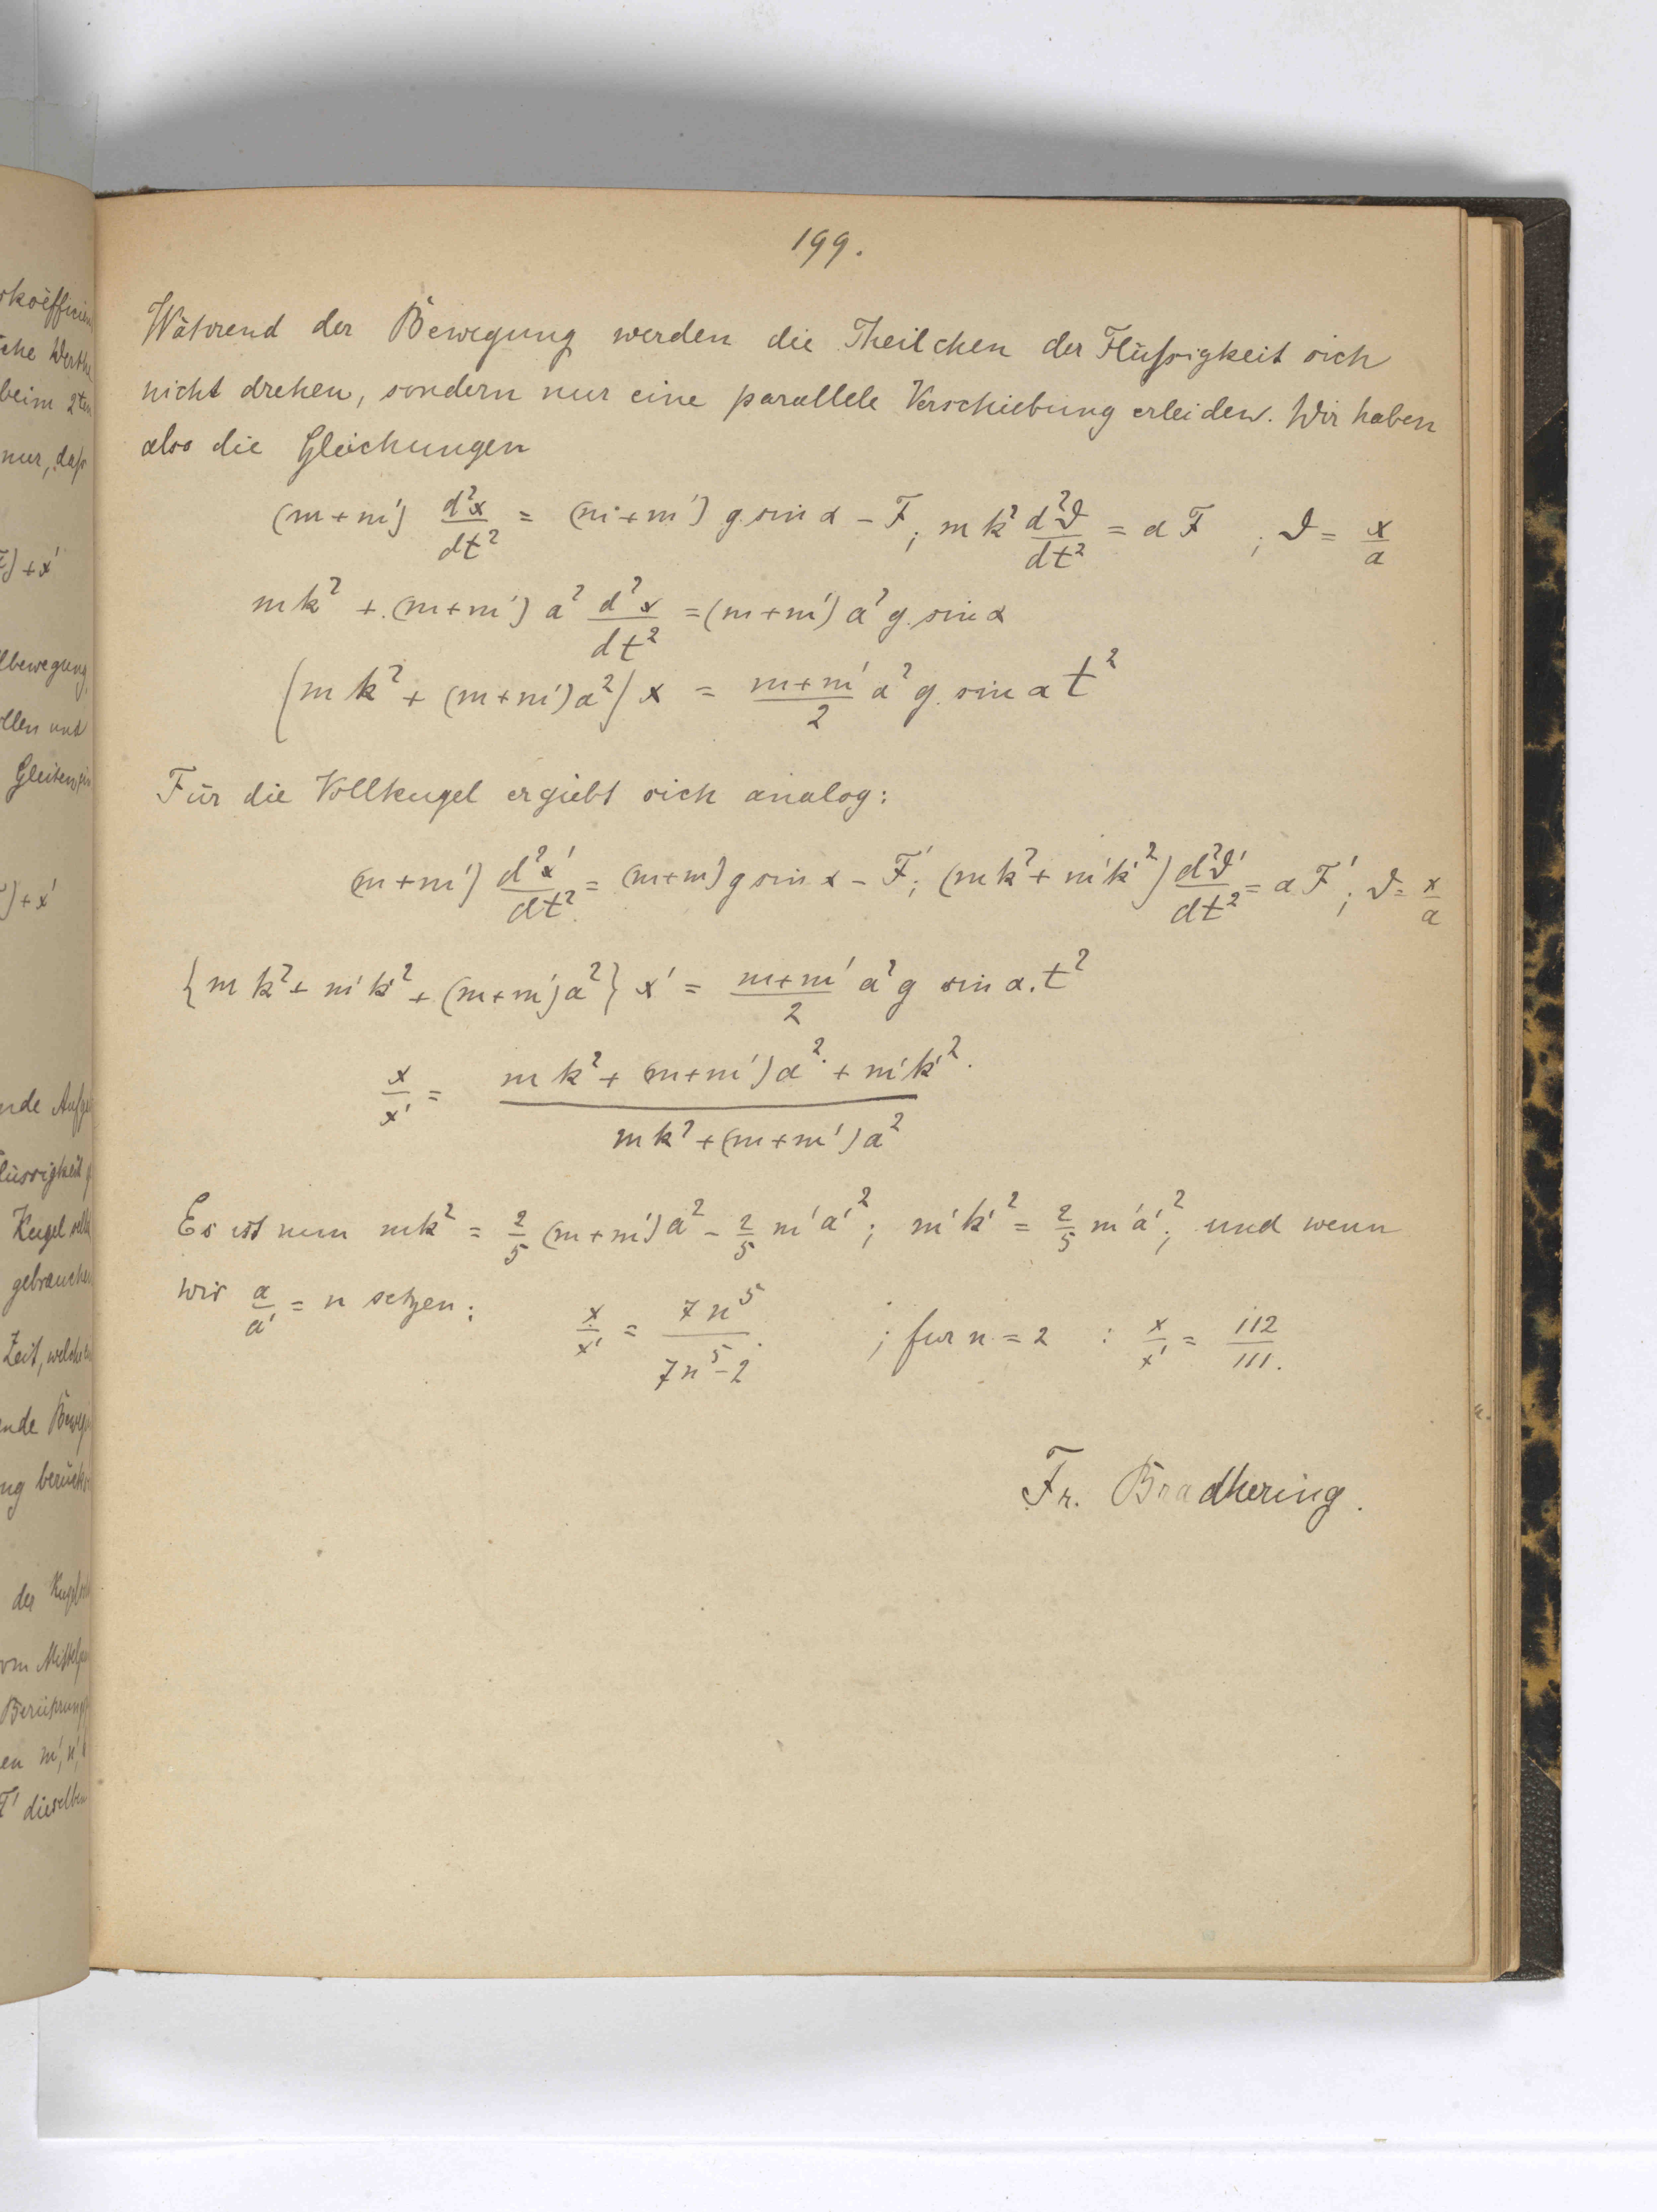 199.
Während der Bewegung werden die Theilchen der Flüssigkeit sich
nicht drehen, sondern nur eine parallele Verschiebung erleiden. Wir haben
also die Gleichungen
(m+m') d²x/dt² = (m+m') g sin α - F; mk² d²ϑ/dt² = aF ; ϑ = x/a
mk² + (m+m') a² d²x/dt² = (m+m') a² g sin α
(mk² + (m+m')a²) x = (m+m')/2 a² g sin α t²
Für die Vollkugel ergiebt sich analog:
(m+m') d²x'/dt² = (m+m) g sin α - F'; (mk² + m'k'²) d²ϑ'/dt² = aF'; ϑ = x/a
{mk² + m'k'² + (m+m')a²} x' = (m+m')/2 a² g sin α. t²
x/x' = (mk² + (m+m')a² + m'k'²)/(mk² + (m+m')a²)
Es ist nun mk² = 2/5 (m+m')a² - 2/5 m'a'²; m'k'² = 2/5 m'a'²; und wenn
wir a/a' = n setzen: x/x' = 7n⁵/(7n⁵-2) ; für n = 2 : x/x' = 112/111.
Fr. Bradhering.
rkoëfficien
che Werthe
beim 2ten
nur, daß
F) + x'
lbewegung,
ollen und
Gleiten
) + x'
nde Aufga
lüssigkeit
Kugel
gebrauchen
Zeit, welche
nde Beweg
ng berück
der Kugel
om Mittelpu
Berührung
en m', n'
F' dieselben